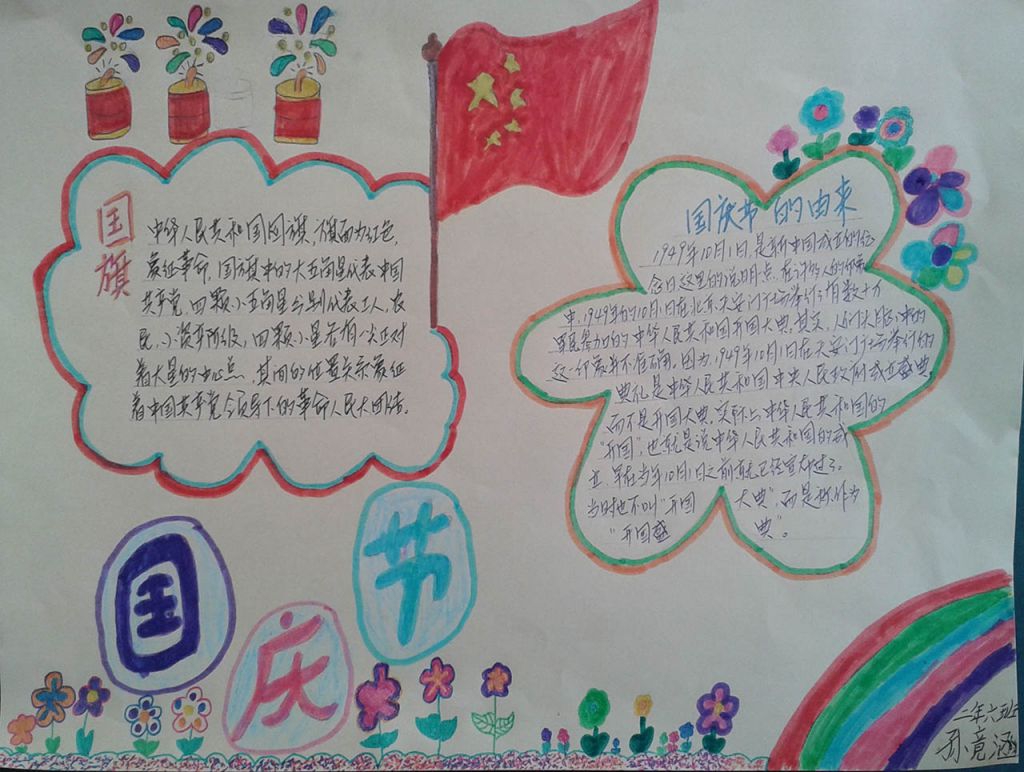 国旗
中华人民共和国国旗,旗面为红色,
象征革命,国旗中的大五角星代表中国
共产党,四颗小五角星分别代表工人,农
民,小资产阶级,四颗小星各有一尖正对
着大星的中心点,其间的位置关系象征
着中国共产党领导下的革命人民大团结。
国庆节的由来
1949年10月1日,是新中国成立的纪
念日这里的说明点,在许多人的印象
中,1949年的10月1日在北京天安门广场举行了有数十万
军民参加的中华人民共和国开国大典,其实,人们头脑中的
这一印象并不准确。因为,1949年10月1日在天安门广场举行的
典礼是中华人民共和国中央人民政府成立盛典,
而不是开国大典,实际上,中华人民共和国的
“开国”,也就是说中华人民共和国的成
立,早在当年10月1日之前就已经宣布过了。
当时也不叫“开国 大典”,而是称作为
“开国盛 典”。
国庆节
二年六班
孙竟涵